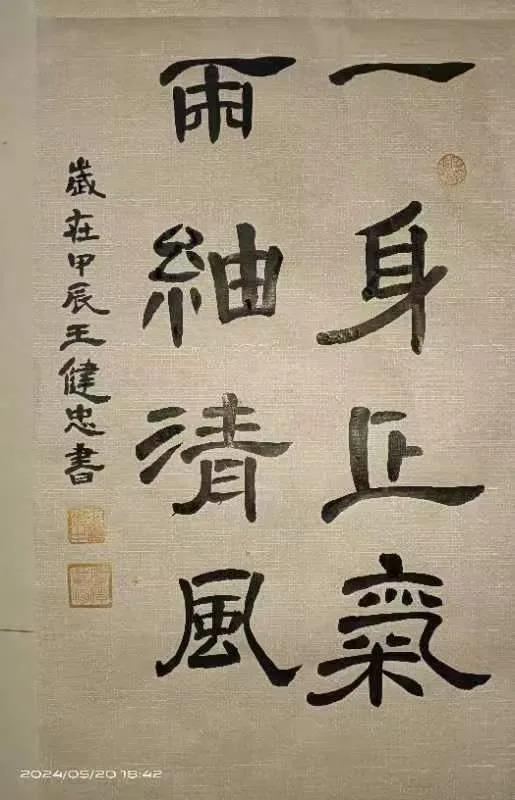 一身正氣
兩紬清風
歲在甲辰王健忠書
2024/05/20 18:42